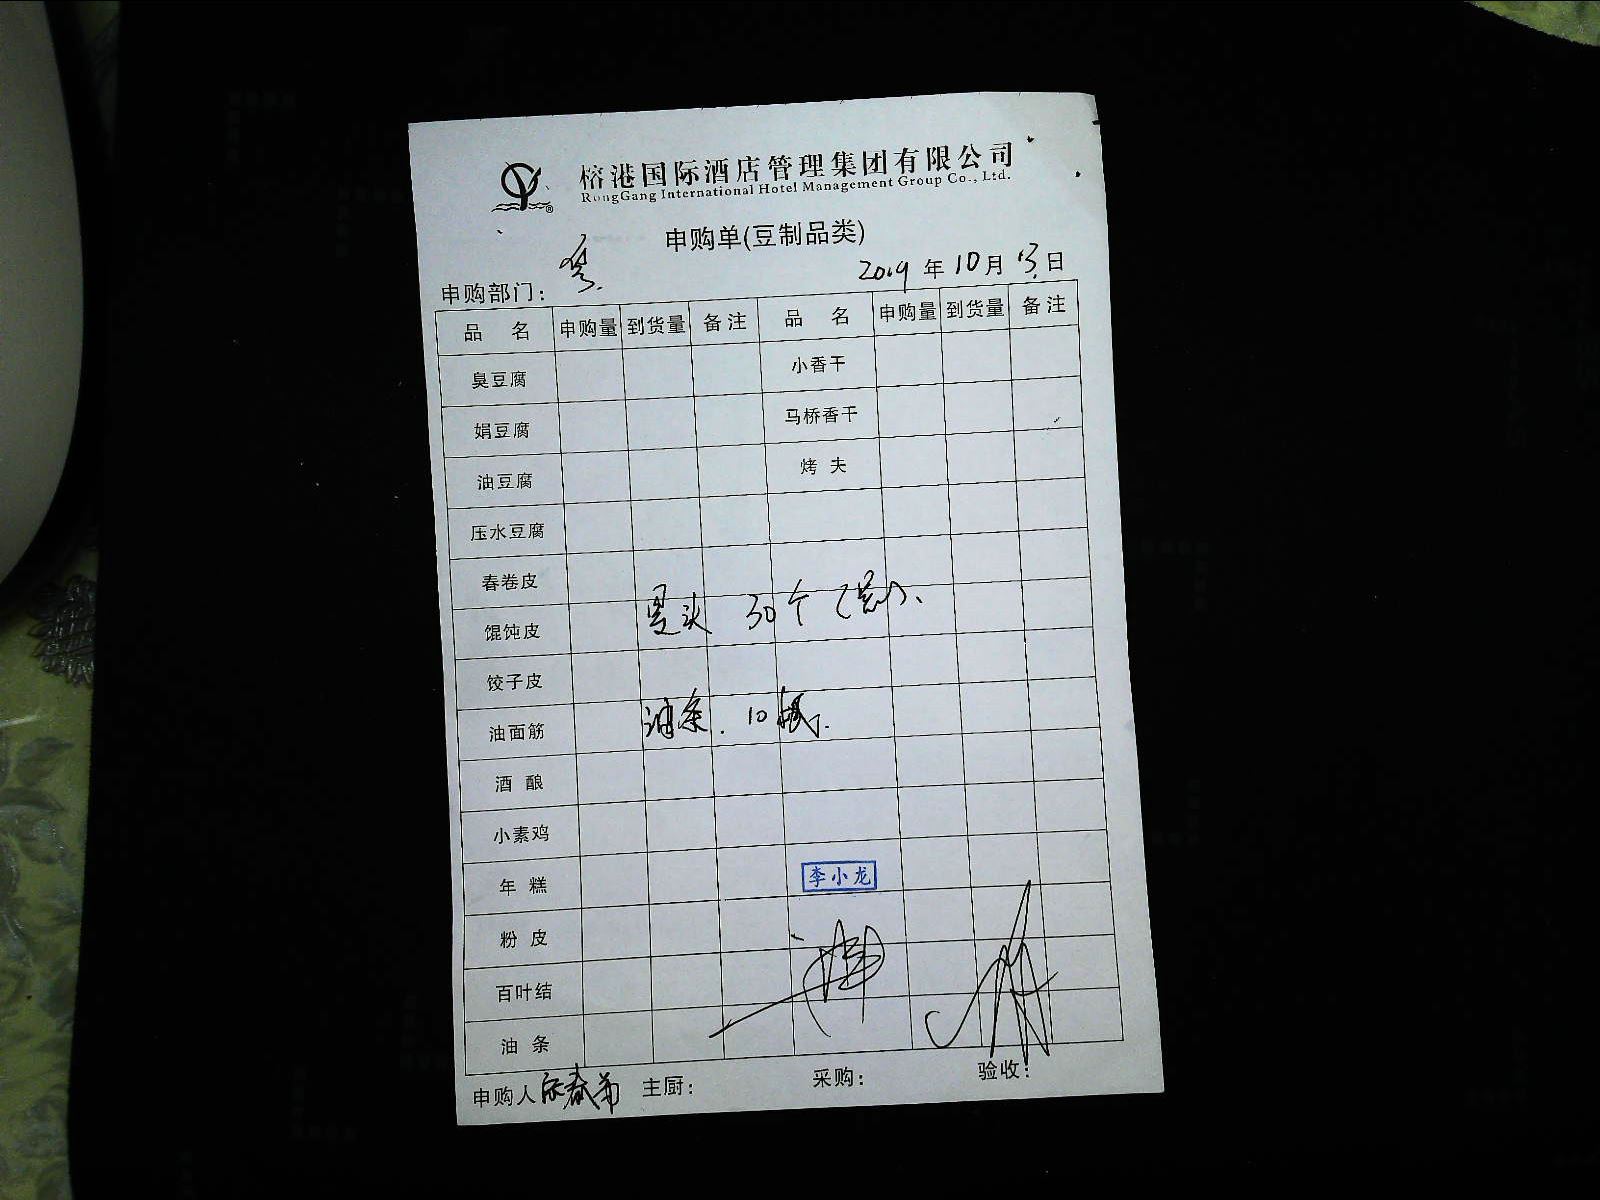 榕港国际酒店管理集团有限公司
RongGang International Hotel Management Group Co., Ltd.
申购单(豆制品类)
申购部门：
2019 年 10 月 13 日
品 名 申购量 到货量 备注 品 名 申购量 到货量 备注
臭豆腐 小香干
娟豆腐 马桥香干
油豆腐 烤 夫
压水豆腐
春卷皮
馄饨皮 30个
饺子皮
油面筋 油条. 10根.
酒 酿
小素鸡
年 糕 李小龙
粉 皮
百叶结
油 条
申购人 主厨： 采购： 验收：